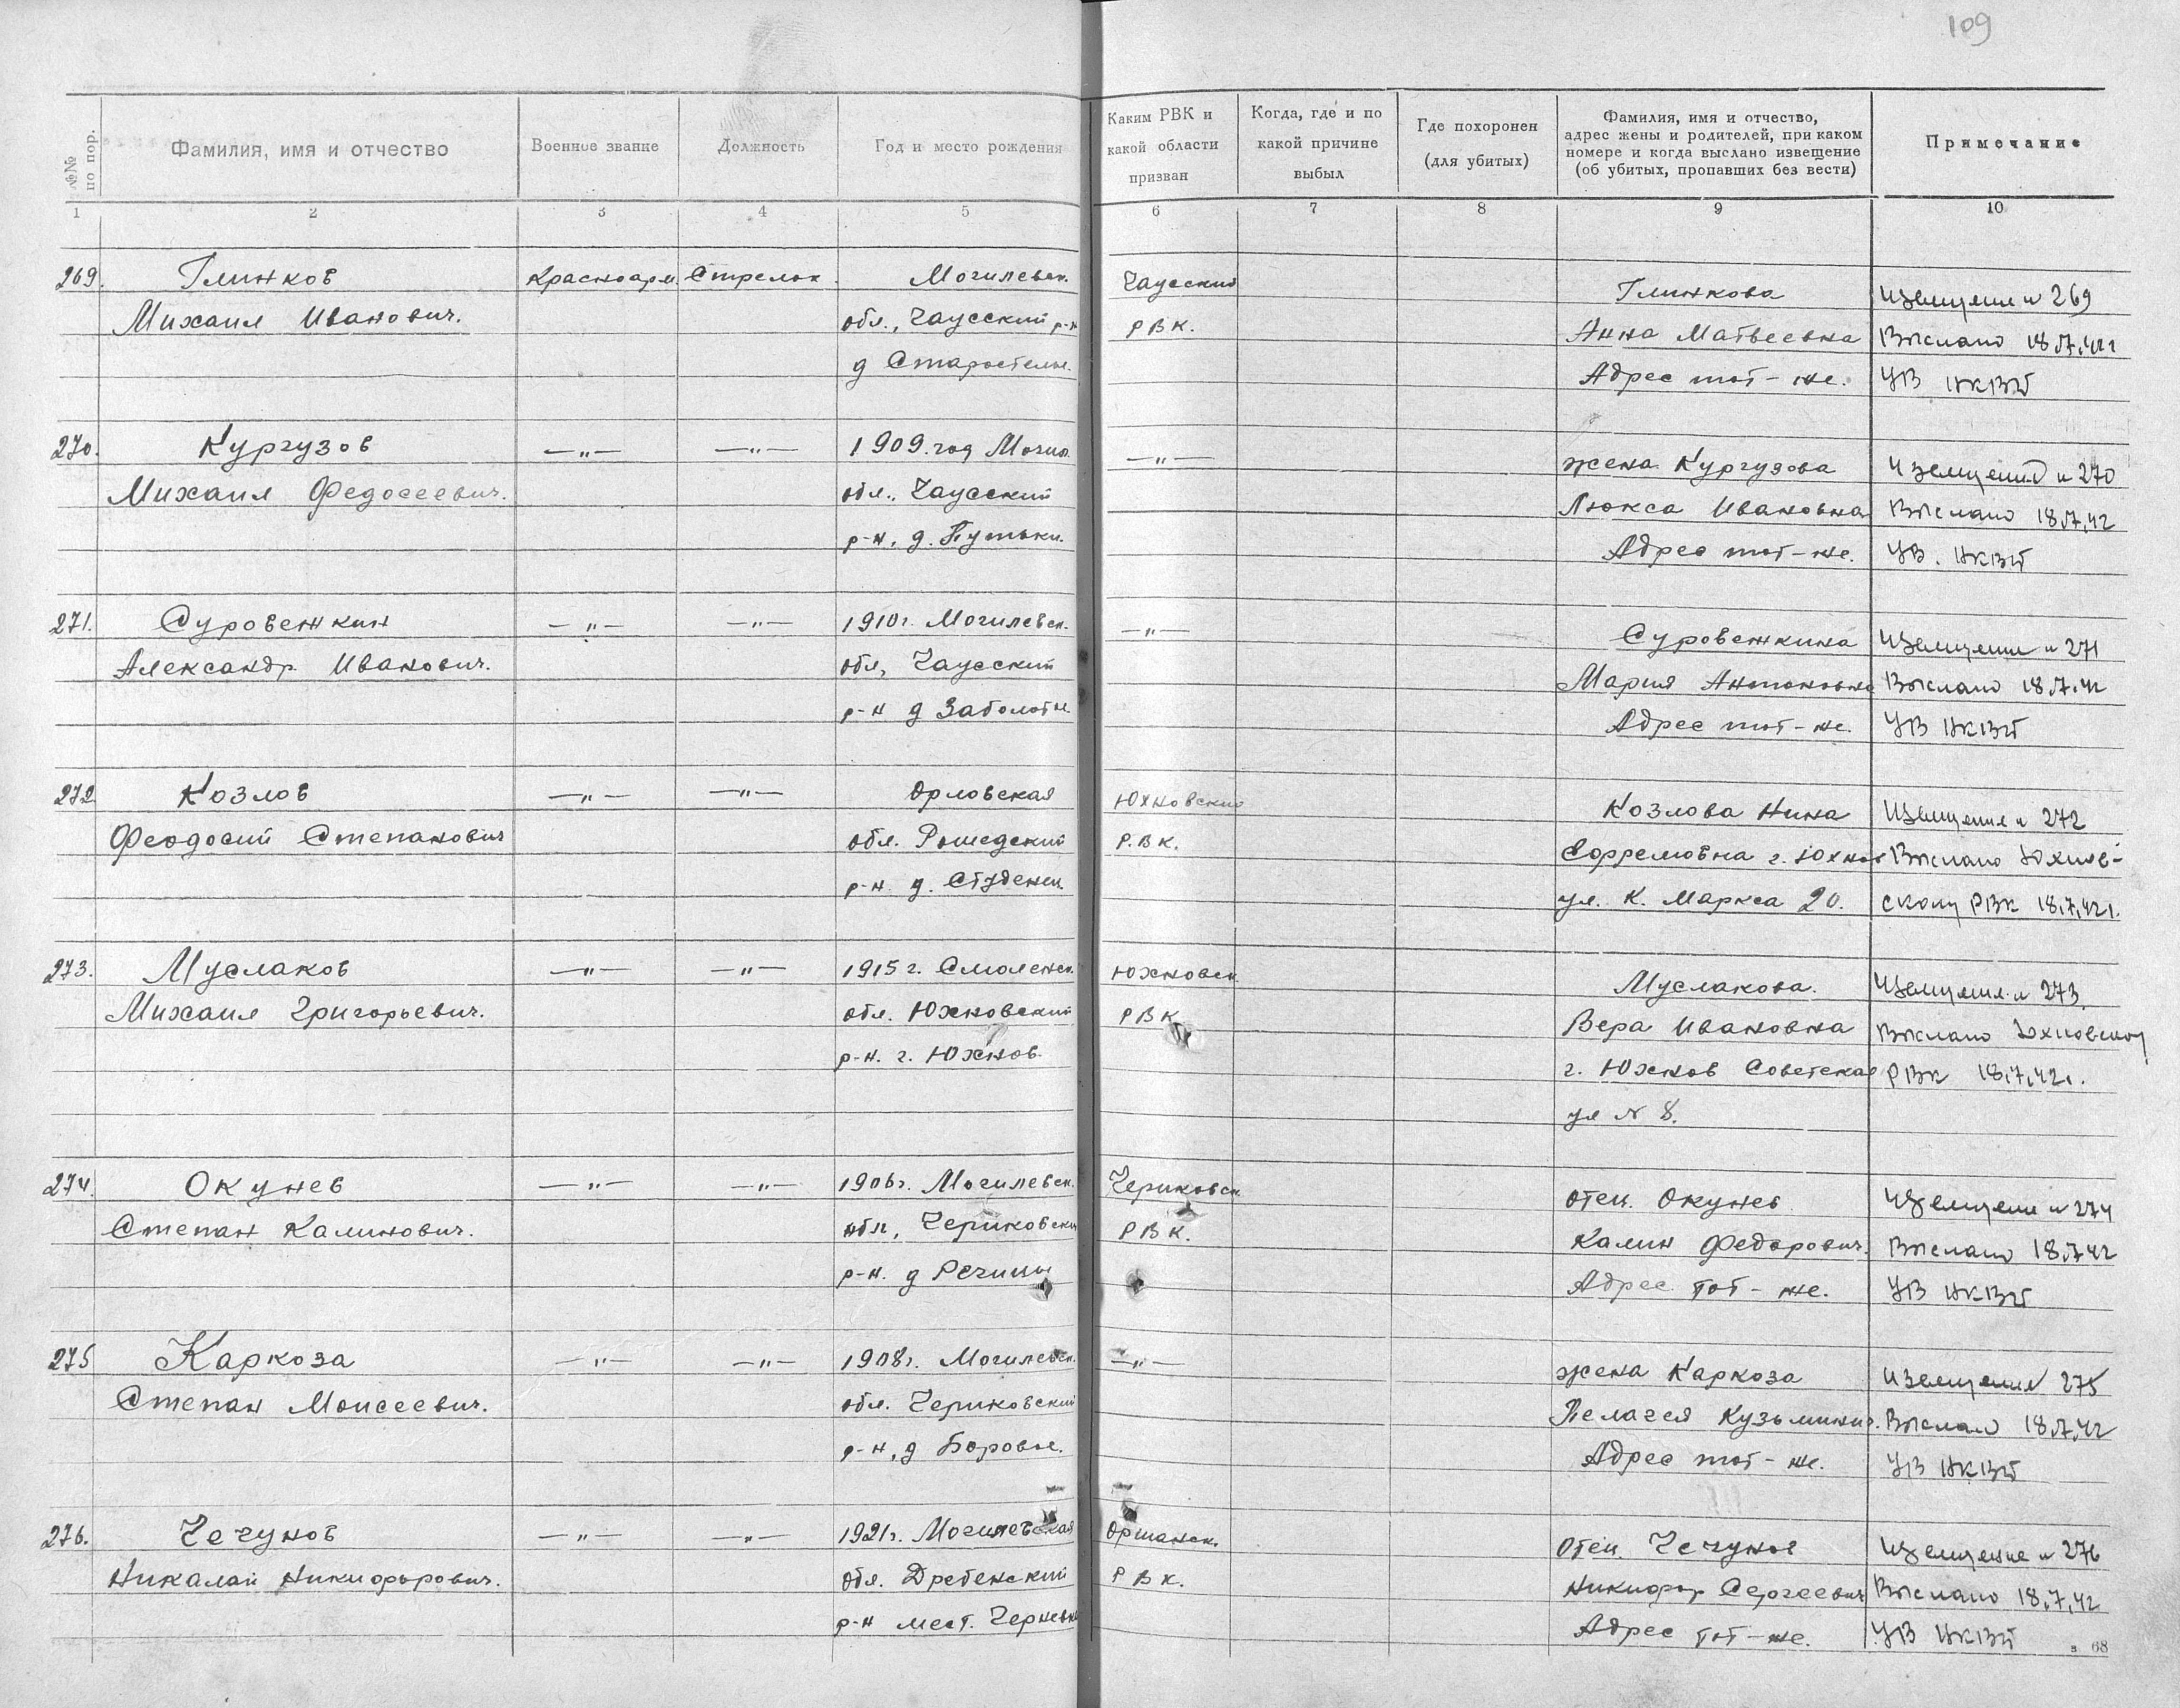 109
№№ по пор.
Фамилия, имя и отчество
Военное звание
Должность
Год и место рождения
Каким РВК и какой области призван
Когда, где и по какой причине выбыл
Где похоронен (для убитых)
Фамилия, имя и отчество, адрес жены и родителей, при каком номере и когда выслано извещение (об убитых, пропавших без вести)
Примечание
1 2 3 4 5 6 7 8 9 10
269. Глинков Красноарм. Стрелок Могилевск. Чаусский Глинкова Извещение н 269
Михаил Иванович. обл., Чаусский р-н РВК. Анна Матвеевна Выслано 18.7.42г
д Старостелье. Адрес тот-же. УВ НКВД
270. Кургузов —„— —„— 1909.год Могил. —„— жена Кургузова Извещение н 270
Михаил Федосеевич. обл., Чаусский Люкса Ивановна Выслано 18.7.42
р-н, д. Путьки. Адрес тот-же. УВ. НКВД
271. Суровежкин —„— —„— 1910г. Могилевск. —„— Суровежкина Извещение н 271
Александр Иванович. обл, Чаусский Мария Антоновна Выслано 18.7.42
р-н д Заболотье Адрес тот-же. УВ НКВД
272 Козлов —„— —„— Орловская Юхновский Козлова Нина Извещение н 272
Феодосий Степанович обл. Р.В.К. Ефремовна г. Юхнов Выслано Юхнов-
р-н. д. Студенец ул. К. Маркса 20. скому РВК 18.7.42г.
273. Муслаков —„— —„— 1915г. Смоленск. Юхновск. Муслакова. Извещение н 273
Михаил Григорьевич. обл. Юхновский РВК Вера Ивановна Выслано Юхновскому
р-н. г. Юхнов. г. Юхнов Советская РВК 18.7.42г.
ул № 8.
274. Окунев —„— —„— 1906г. Могилевск. Чериковск. отец. Окунев Извещение н 274
Степан Калинович. обл, Чериковский РВК. Калин Федорович. Выслано 18.7.42
р-н. д Речицы Адрес тот-же. УВ НКВД
275 Каркоза —„— —„— 1908г. Могилевск. —„— жена Каркоза Извещение 275
Степан Моисеевич. обл. Чериковский Пелагея Кузьминич. Выслано 18.7.42
р-н, д Боровые. Адрес тот-же. УВ НКВД
276. Чечунов —„— —„— 1921г. Могилевская Оршанск. Отец. Чечунов Извещение н 276
Николай Никифорович. обл. Дребенский РВК. Никифор Сергеевич Выслано 18.7.42
р-н мест. Адрес тот-же. УВ НКВД
з 68